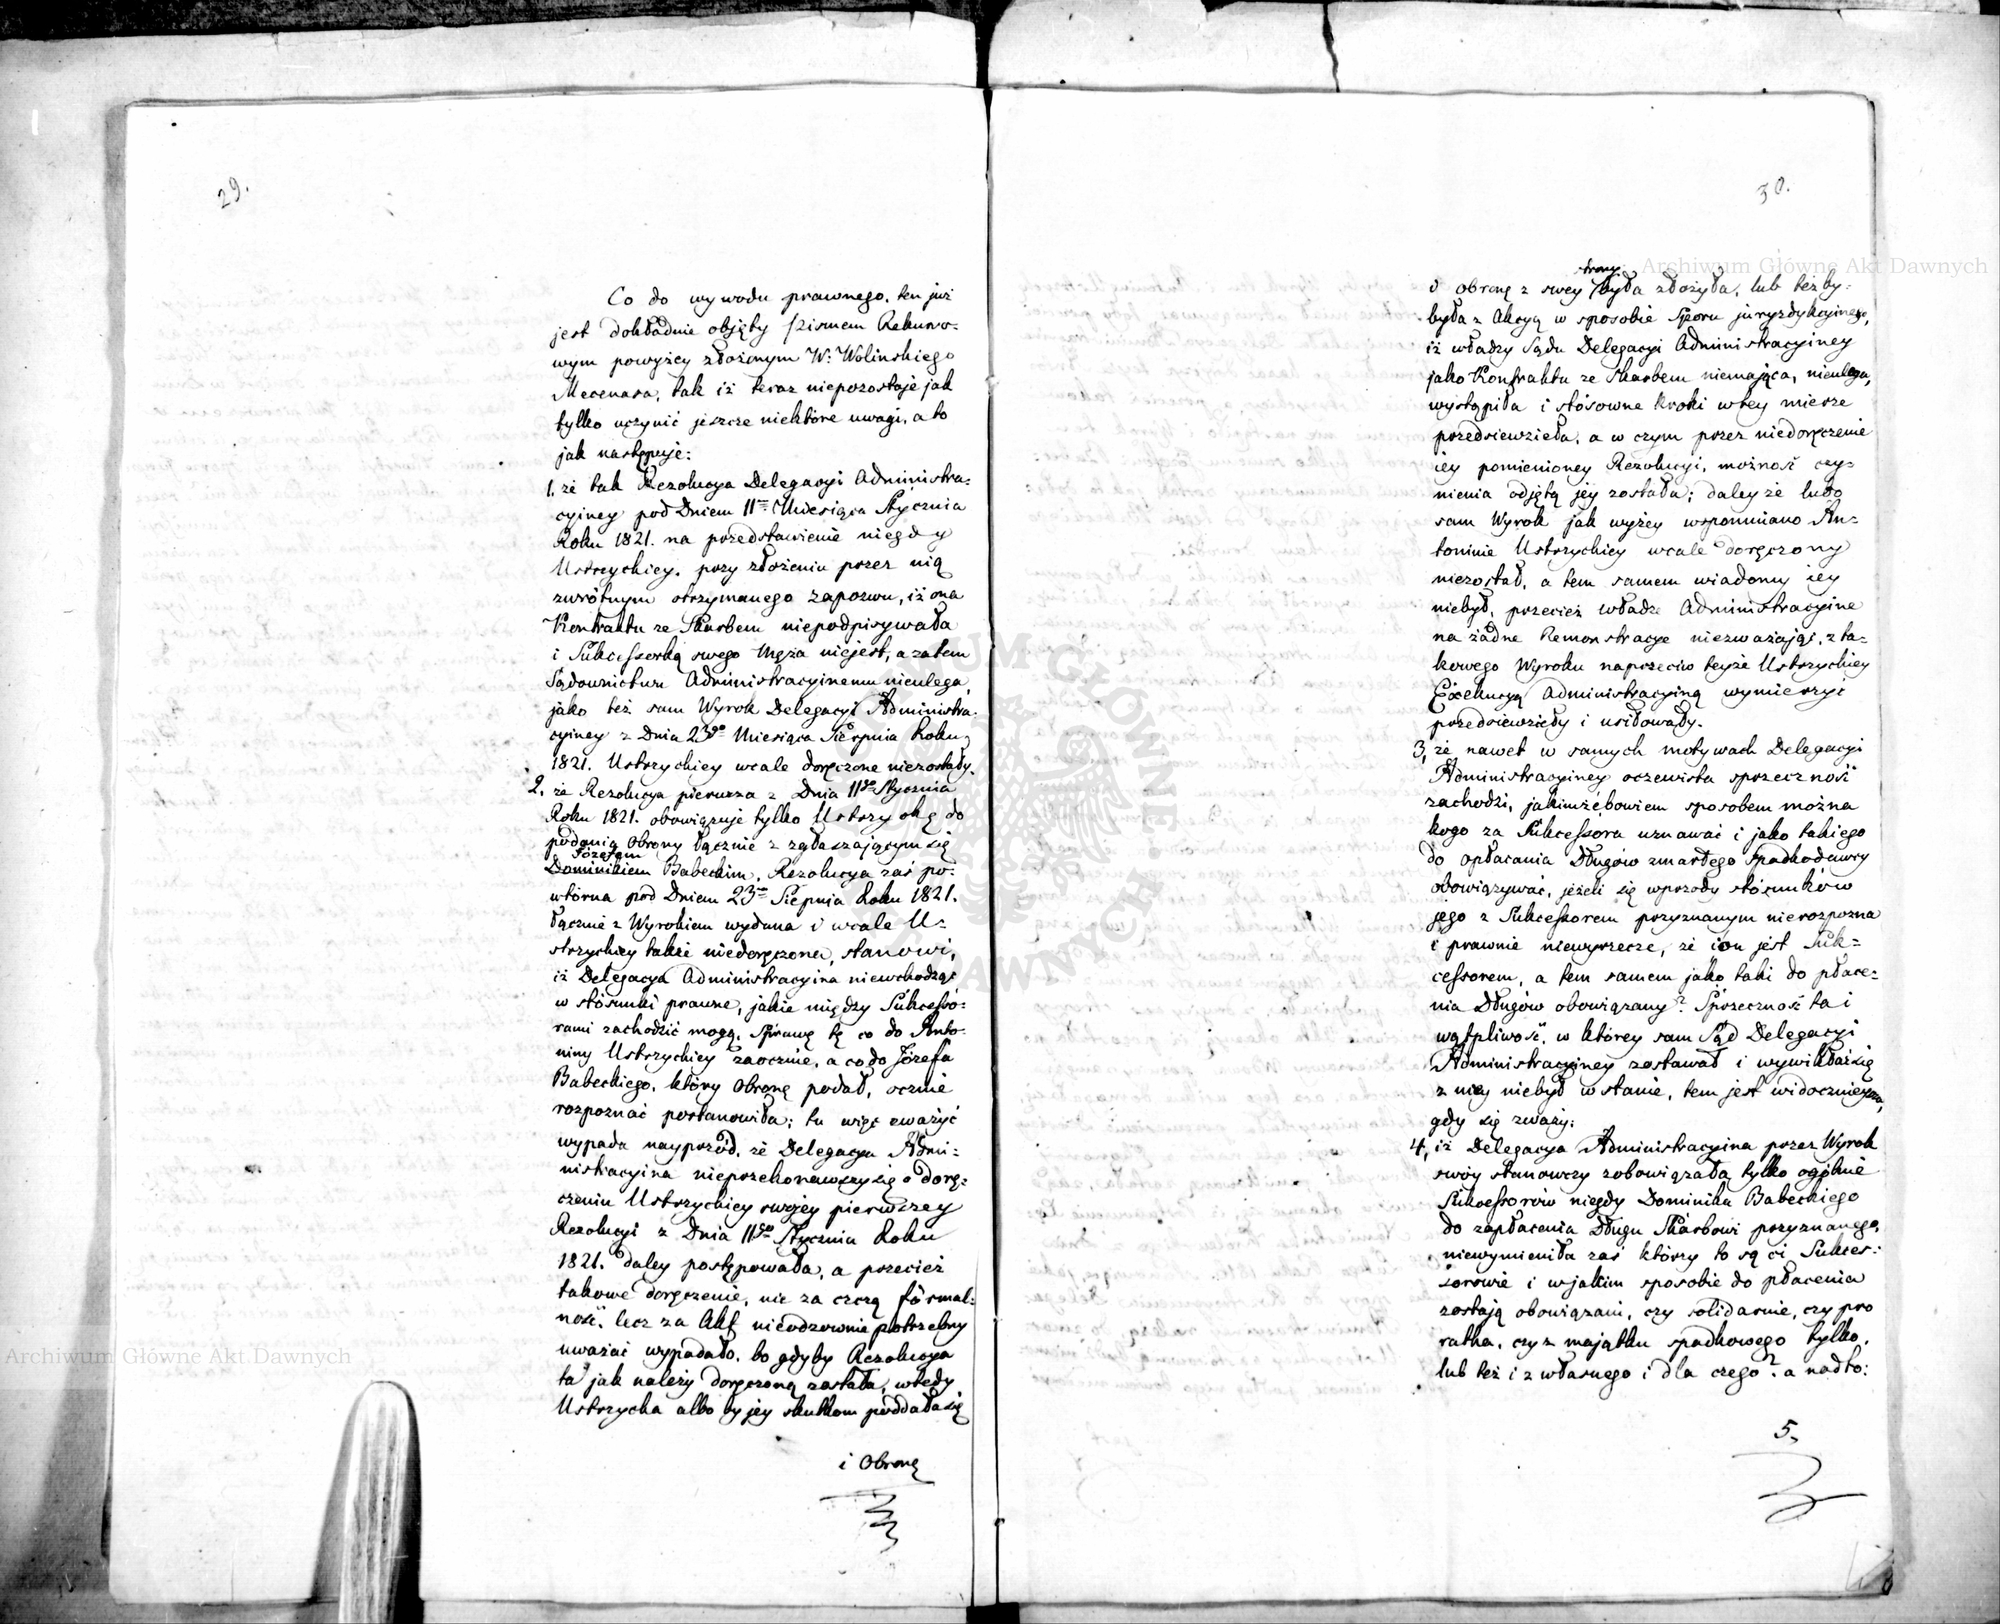 29.
Co do wywodu prawnego, ten już
jest dokładnie objęty pismem Rekurso-
wym powyżey złożonym W: Wolinskiego
Mecenasa, tak iż teraz niepozostaje jak
tylko uczynić jeszcze niektóre uwagi, a to
jak następuje:
1. że tak Rezolucya Delegacyi Administra-
cyiney pod Dniem 11 Miesiąca Stycznia
Roku 1821. na przedstawienie niegdy
Ustrzyckiey, przy złożeniu przez nią
zwrótnym otrzymanego zapozwu, iż ona
Kontraktu ze Skarbem niepodpisywała
i Sukcessorką swego Męża niejest, a zatem
Sądownictwu Administracyinemu nieulega,
jako też sam Wyrok Delegacyi Administra-
cyiney z Dnia 23go Miesiąca Sierpnia Roku
1821. Ustrzyckiey wcale doręczone niezostały.
2. że Rezolucya pierwsza z Dnia 11go Stycznia
Roku 1821. obowiązuje tylko Ustrzycką do
podania Obrony łącznie z zgłaszającym się
Józefem
Dominikiem Babeckim, Rezolucya zaś po-
wtórna pod Dniem 23 Sierpnia Roku 1821.
łącznie z Wyrokiem wydana i wcale U-
strzyckiey także niedoręczona, stanowi,
iż Delegacya Administracyina niewchodząc
w stósunki prawne, jakie między Sukcesso-
rami zachodzić mogą, Sprawę tę co do Anto-
niny Ustrzyckiey zaocznie, a co do Józefa
Babeckiego, który Obronę podał, ocznie
rozpoznać postanowiła; tu więc zważyć
wypada nayprzód, że Delegacya Admi-
nistracyina nieprzekonawszy się o dorę-
czeniu Ustrzyckiey swojey pierwszey
Rezolucyi z Dnia 11go Stycznia Roku
1821. daley postępowała, a przecież
takowe doręczenie, nie za czczą formal-
ność, lecz za Akt nieodzownie potrzebny
uważać wypadało, bo gdyby Rezolucya
ta jak należy doręczoną została, wtedy
Ustrzycka albo by jey skutkom poddała się
i Obronę
30.
strony
i obronę z swey była złożyła, lub też by-
była z Akcyą w sposobie Sporu juryzdykcyinego,
iż władzy Sądu Delegacyi Administracyiney
jako Kontraktu ze Skarbem niemająca, nieulega,
wystąpiła i stósowne kroki w tey mierze
przedsiewzięła, a w czym przez niedoręczenie
iey pomienioney Rezolucyi, możność czy-
nienia odjętą jey została; daley że lubo
sam Wyrok jak wyżey wspomniano An-
toninie Ustrzyckiey wcale doręczony
niezostał, a tem samem wiadomy iey
niebył, przecież władze Administracyine
na żadne Remonstracye niezważając, z ta-
kowego Wyroku naprzeciw teyże Ustrzyckiey
Exekucyą Administracyiną wymierzyć
przedsiewzięły i usiłowały.
3, że nawet w samych motywach Delegacyi
Administracyiney oczewista sprzeczność
zachodzi, jakimże bowiem sposobem można
kogo za Sukcessora uznawać i jako takiego
do opłacania Długów zmarłego Spadkodawcy
obowiązywać, jeżeli się wprzódy stósunków
jego z Sukcessorem przyznanym nierozpozna
i prawnie niewyrzecze, że ion jest Suk-
cessorem, a tem samem jako taki do płace-
nia Długów obowiązany? Sprzeczność ta i
wątpliwość, w którey sam Sąd Delegacyi
Administracyiney zostawał i wywikłać się
z niey niebył w stanie, tem jest widocznieyszą,
gdy się zważy:
4, iż Delegacya Administracyina przez Wyrok
swóy stanowczy zobowiązała tylko ogólnie
Sukcessorów niegdy Dominika Babeckiego
do zapłacenia Długu Skarbowi przyznanego,
niewymieniła zaś którzy to są ci Sukces-
sorowie i w jakim sposobie do płacenia
zostają obowiązani, czy solidarnie, czy pro
ratha, czy z majątku spadkowego tylko,
lub też i z własnego i dla czego? a nadto:
5.
Archiwum Główne Akt Dawnych
Archiwum Główne Akt Dawnych